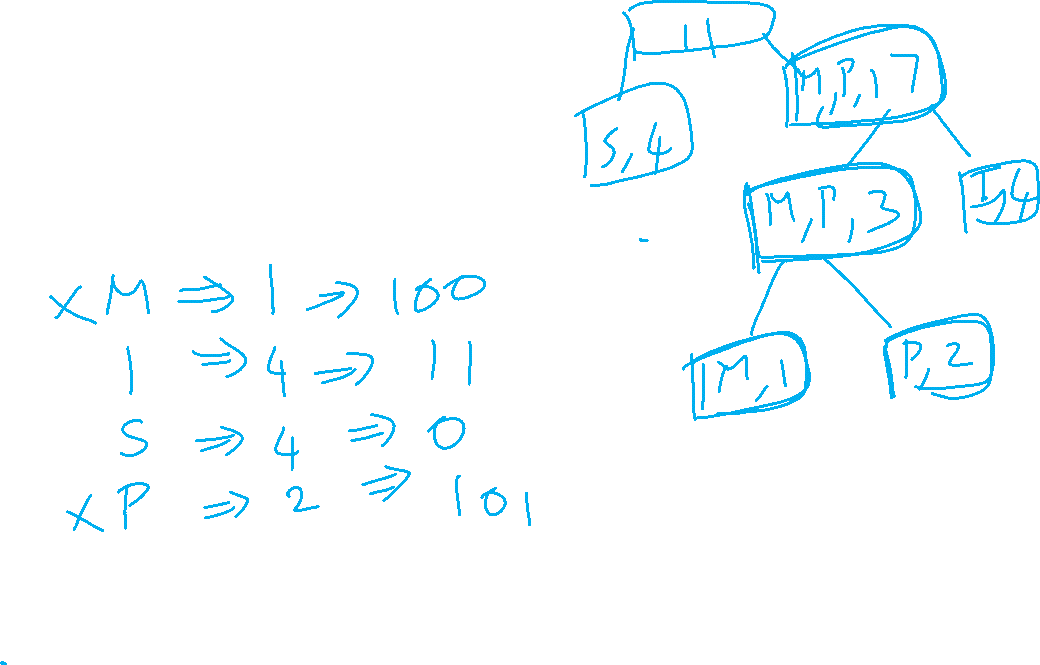 11
M,P,I 7
S,4
M,P,3
I,4
M,1
P,2
x M ⇒ 1 → 100
I ⇒ 4 ⇒ 11
S ⇒ 4 ⇒ 0
x P ⇒ 2 ⇒ 101